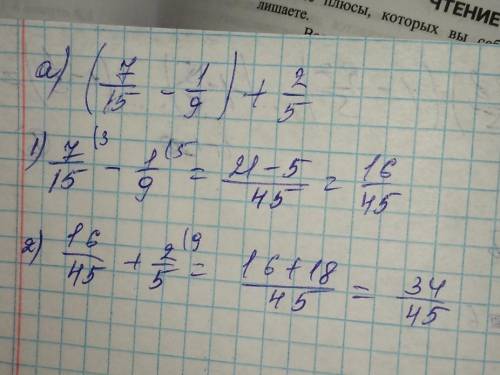 ЧТЕНИЕ
плюсы, которых вы
лишаете.
а) (7/15 - 1/9) + 2/5
1) 7/15 (3 - 1/9 (5 = 21-5/45 = 16/45
2) 16/45 + 2/5 (9 = 16+18/45 = 34/45